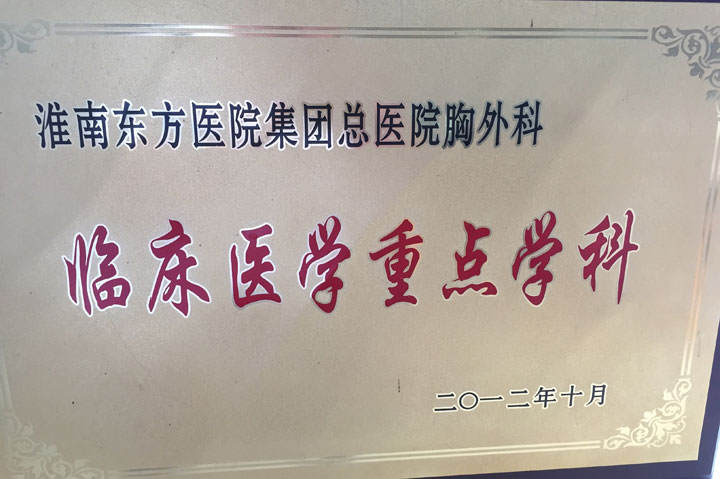 淮南东方医院集团总医院胸外科
临床医学重点学科
二〇一二年十月